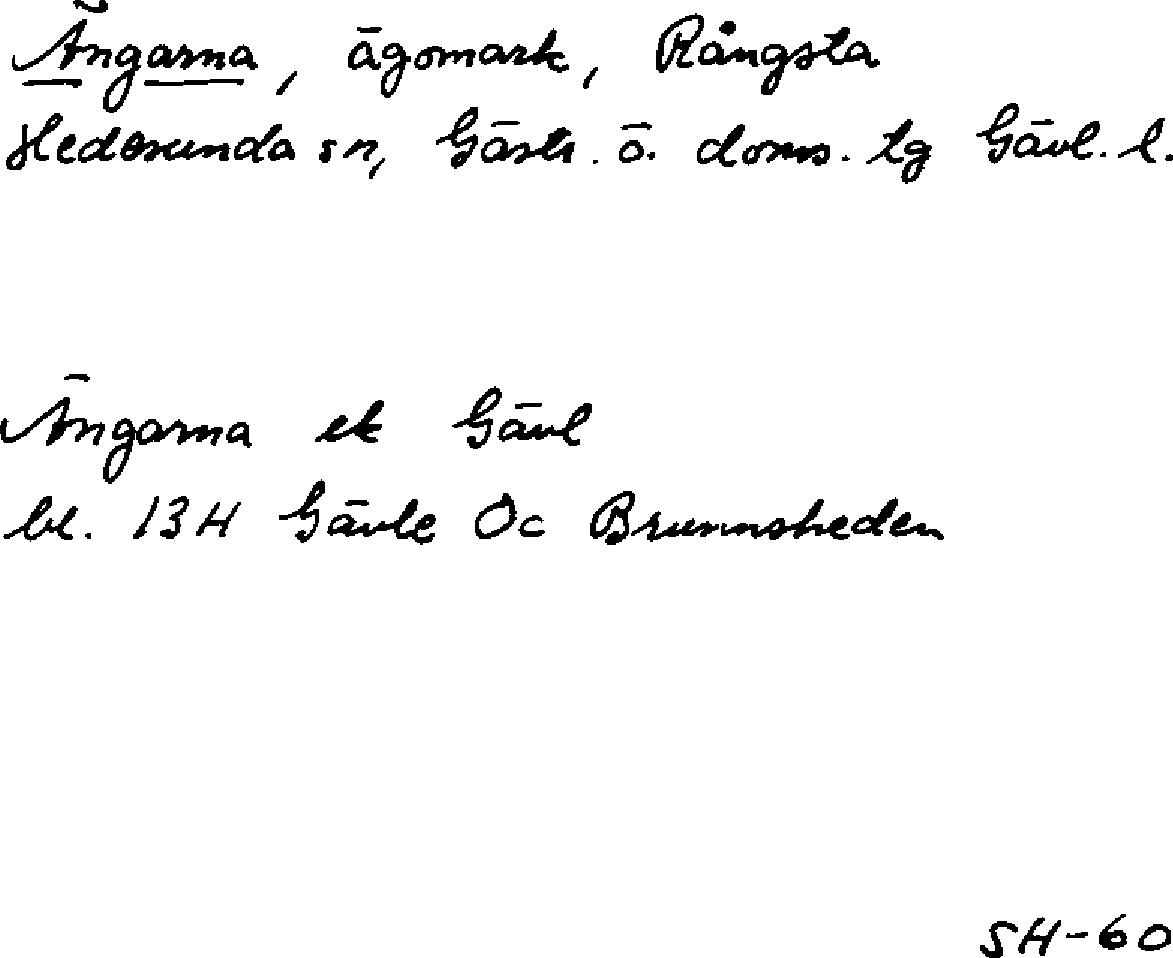 Ängarna, ägomark, Rångsta
Hedesunda sn, Gästr. ö. doms. tg Gävl. l.
Ängarna ek Gävl
bl. 13H Gävle 0c Brunnsheden
SH-60